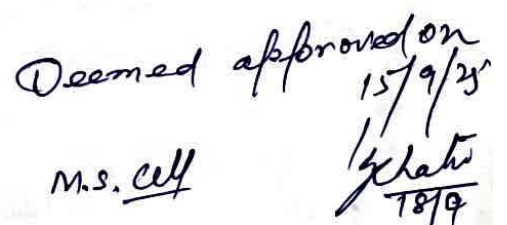 Deemed approved on
15/9/25
M.S. Cell
18/9